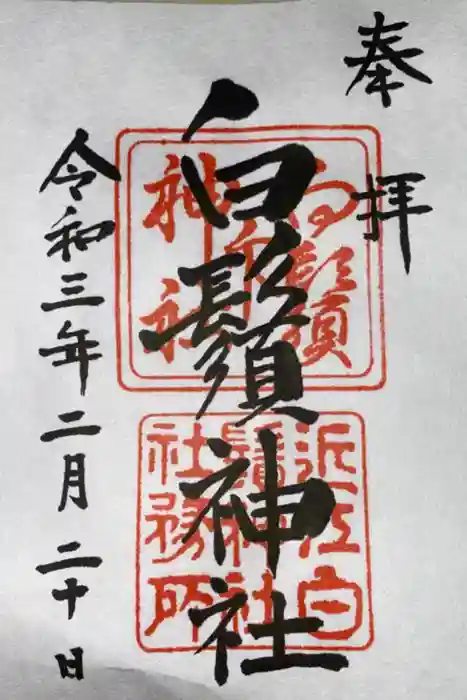 奉拝
白鬚神社
令和三年二月二十日
白鬚神社
近江白
鬚神社
社務所